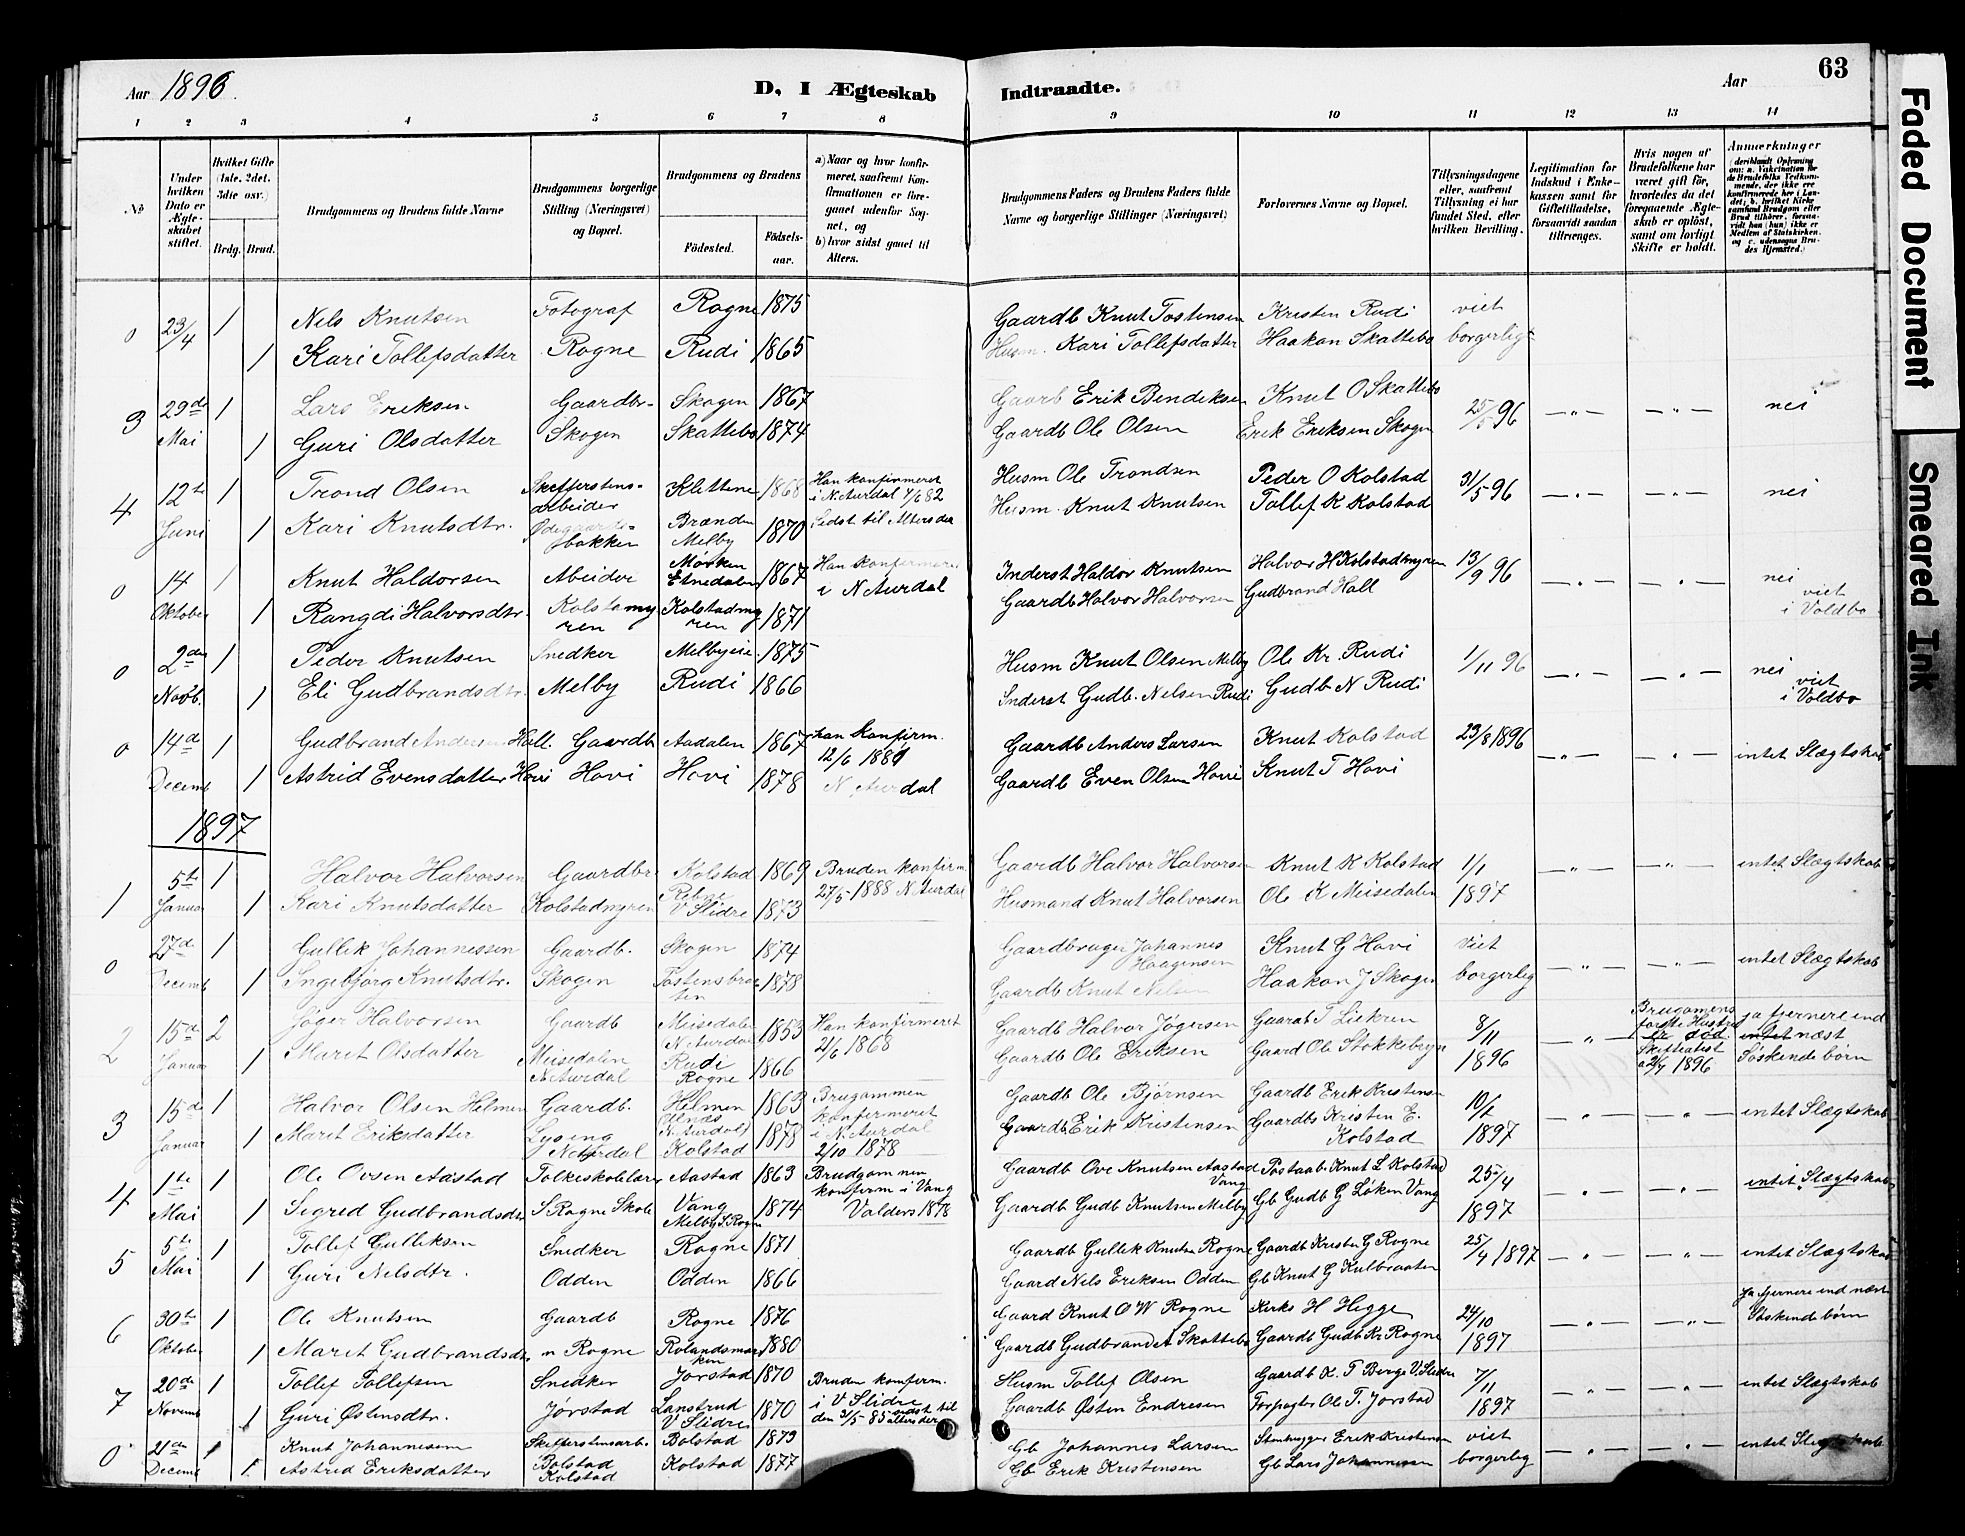 Aar 1896.
D. I Ægteskab Indtraadte.
Aar
63
Faded Document
Smeared Ink
1 2 3 4 5 6 7 8 9 10 11 12 13 14
No
Under hvilken Dato er Ægteskabet stiftet.
Hvilket Gifte (1ste, 2det, 3die osv.)
Brdg. Brud.
Brudgommens og Brudens fulde Navne
Brudgommens borgerlige Stilling (Næringsvei) og Bopæl.
Brudgommens og Brudens
Fødested.
Fødselsaar.
a) Naar og hvor konfirmeret, saafremt Konfirmationen er foregaaet udenfor Sognet, og
b) hvor sidst gaaet til Alters.
Brudgommens Faders og Brudens Faders fulde Navne og borgerlige Stillinger (Næringsvei)
Forlovernes Navne og Bopæl.
Tillysningsdagene eller, saafremt Tillysning ei har fundet Sted, efter hvilken Bevilling.
Legitimation for Indskud i Enkekassen samt for Giftetilladelse, forsaavidt saadan tiltrænges.
Hvis nogen af Brudefolkene har været gift før, hvorledes da det foregaaende Ægteskab er opløst, samt om lovligt Skifte er holdt.
Anmærkninger
0 23/4 1 Nels Knutsen Fotograf Rogne 1875 Gaardb Knut Tostensen Kristen Rudi viet
1 Kari Tollefsdatter Rogne Rudi 1865 Husm. Kari Tollefsdatter Haakon Skattebo borgerligt
3 29de 1 Lars Eriksen Gaardbr. Skogen 1867 Gaarb Erik Bendiksen Knut O Skattebo 25/5 96 —„— —„— nei
Mai 1 Guri Olsdatter Skogen Skattebo 1874 Gaardb Ole Olsen Erik Eriksen Skogen
4 12te 1 Trond Olsen Skifferstens- Klettene 1868 Han konfirmeret Husm Ole Trondsen Peder O Kolstad 31/5 96 —„— —„— nei
arbeider i N. Aurdal
Juni 1 Kari Knutsdtr. Ødegaards- Brænden 1870 Sidst til Alters der Husm. Knut Knutsen Tollef K Kolstad
bakken Melby
0 14 1 Knut Haldorsen Abeider Mørken Etnedalen 1867 Han konfirmeret Inderst Haldor Knutsen Halvor H Kolstadmyren 13/9 96 —„— —„— nei
i N Aurdal
Oktober 1 Rangdi Halvorsdtr. Kolstamyren Kolstadmyren 1871 Gaardb Halvor Halvorsen Gudbrand Hall viet i Voldbo
0 2den 1 Peder Knutsen Snedker Melbyeie 1875 Husm Knut Olsen Melby Ole Kr. Rudi 1/11 96 —„— —„— nei
Novb. 1 Eli Gudbrandsdtr Melby Rudi 1866 Inderst Gudb. Nelsen Rudi Gudb N Rudi viet i Voldbo
0 14de 1 Gudbrand Andersen Hall. Gaardb Aadalen 1867 han konfirm. Gaardb Anders Larsen Knut Kolstad 23/8 1896 —„— —„— intet Slægtskab
Decemb 1 Astrid Evensdatter Hovi Hovi Hovi 1878 N Aurdal Gaardb Even Olsen Hovi Knut T Hovi
1897
1 5te 1 Halvor Halvorsen Gaardbr Kolstad 1869 Bruden konfirm Gaardb Halvor Halvorsen Knut K Kolstad 1/1 —„— —„— intet Slægtskab
Januar 1 Kari Knutsdatter Kolstadmyren V Slidre 1873 27/5 1888 N Aurdal Husmand Knut Halvorsen Ole K Meisedalen 1897
0 27de 1 Gullik Johannessen Gaardb. Skogen 1874 Gaardbruger Johannes Haagensen Knut G Hovi viet —„— —„— intet Slægtskab
Decemb 1 Ingebjørg Knutsdtr. Skogen Tostensbraaten 1878 Gaardb Knut Nilsen Haakon J Skogen borgerlig
2 15de 2 Jøger Halvorsen Gaardb Meisedalen N. Aurdal 1853 Han konfirmeret 1868 Gaardb Halvor Jøgersen 8/11 —„— Brugomens første Hustru er død. Skifteatest 1896 ja fjernere end intet næst
Januar 1 Marit Olsdatter Meisedalen N Aurdal Rudi Rogne 1866 Gaardb Ole Eriksen Gaard Ole Stokkebryn 1896 Søskende børn
3 15de 1 Halvor Olsen Helmen Gaardb. Helmen N. Aurdal 1863 Brugommen Gaardb Ole Bjørnsen Gaardb Erik Kristensen 10/1 —„— —„— intet Slægtskab
konfermeret
Januar 1 Marit Eriksdatter Lyseng N Aurdal Kolstad 1878 i N. Aurdal 2/10 1878 Gaardb Erik Kristensen Gaardbs Kristen E. Kolstad 1897
4 1te 1 Ole Ovsen Aastad Folkeskolelærer Aastad 1863 Brudgommen Gaardb Ove Knutsen Aastad Vang Knut L Kolstad 25/4 —„— —„— intet Slægtskab
konfirm i Vang
Mai 1 Sigred Gudbrandsdtr S Rogne Skole Vang Melby S. Rogne 1874 Valders 1878 Gaardb Gudb Knutsen Melby Gb Gudb G Løken Vang 1897
5 5te 1 Tollef Gulliksen Snedker Rogne 1871 Gaardb Gullik Knutsen Rogne Gaardb Kristen G Rogne 25/4 1897 —„— —„— intet Slægtskab
Mai 1 Guri Nelsdtr. Odden Odden 1866 Gaard Nels Eriksen Odden Gb Knut G Kulbraaten
6 30te 1 Ole Knutsen Gaardb Rogne 1876 Gaard Knut O W Rogne Kirks H Hegge 24/10 —„— —„— Ja fjernere end næst
Oktober 1 Marit Gudbrandsdtr n Rogne Rolandsmarken 1880 Gaardb Gudbrand Skattebo Gaardb Gudb Kr Rogne 1897 Søskende børn
7 20de 1 Tollef Tollefsen Snedker Jorstad 1870 Bruden konferm. Husm Tollef Olsen Gaardb K. T Berge V. Slidre 7/11 —„— —„— intet Slægtskab
i V Slidre
Novemb 1 Guri Østensdtr. Jørstad Lanstrud V Slidre 1870 den 3/5 85 sidst til alters der Gaardb Østen Endresen Forpagter Ole T. Jorstad 1897
0 21de 1 Knut Johannesen Skifferstensarb. Bolstad 1873 Gb Johannes Larsen Erik Kristensen viet —„— —„— intet
Decemb 1 Astrid Eriksdatter Bolstad Kolstad Kolstad 1877 Gb Erik Kristensen Gb Lars Johannesen borgerlig